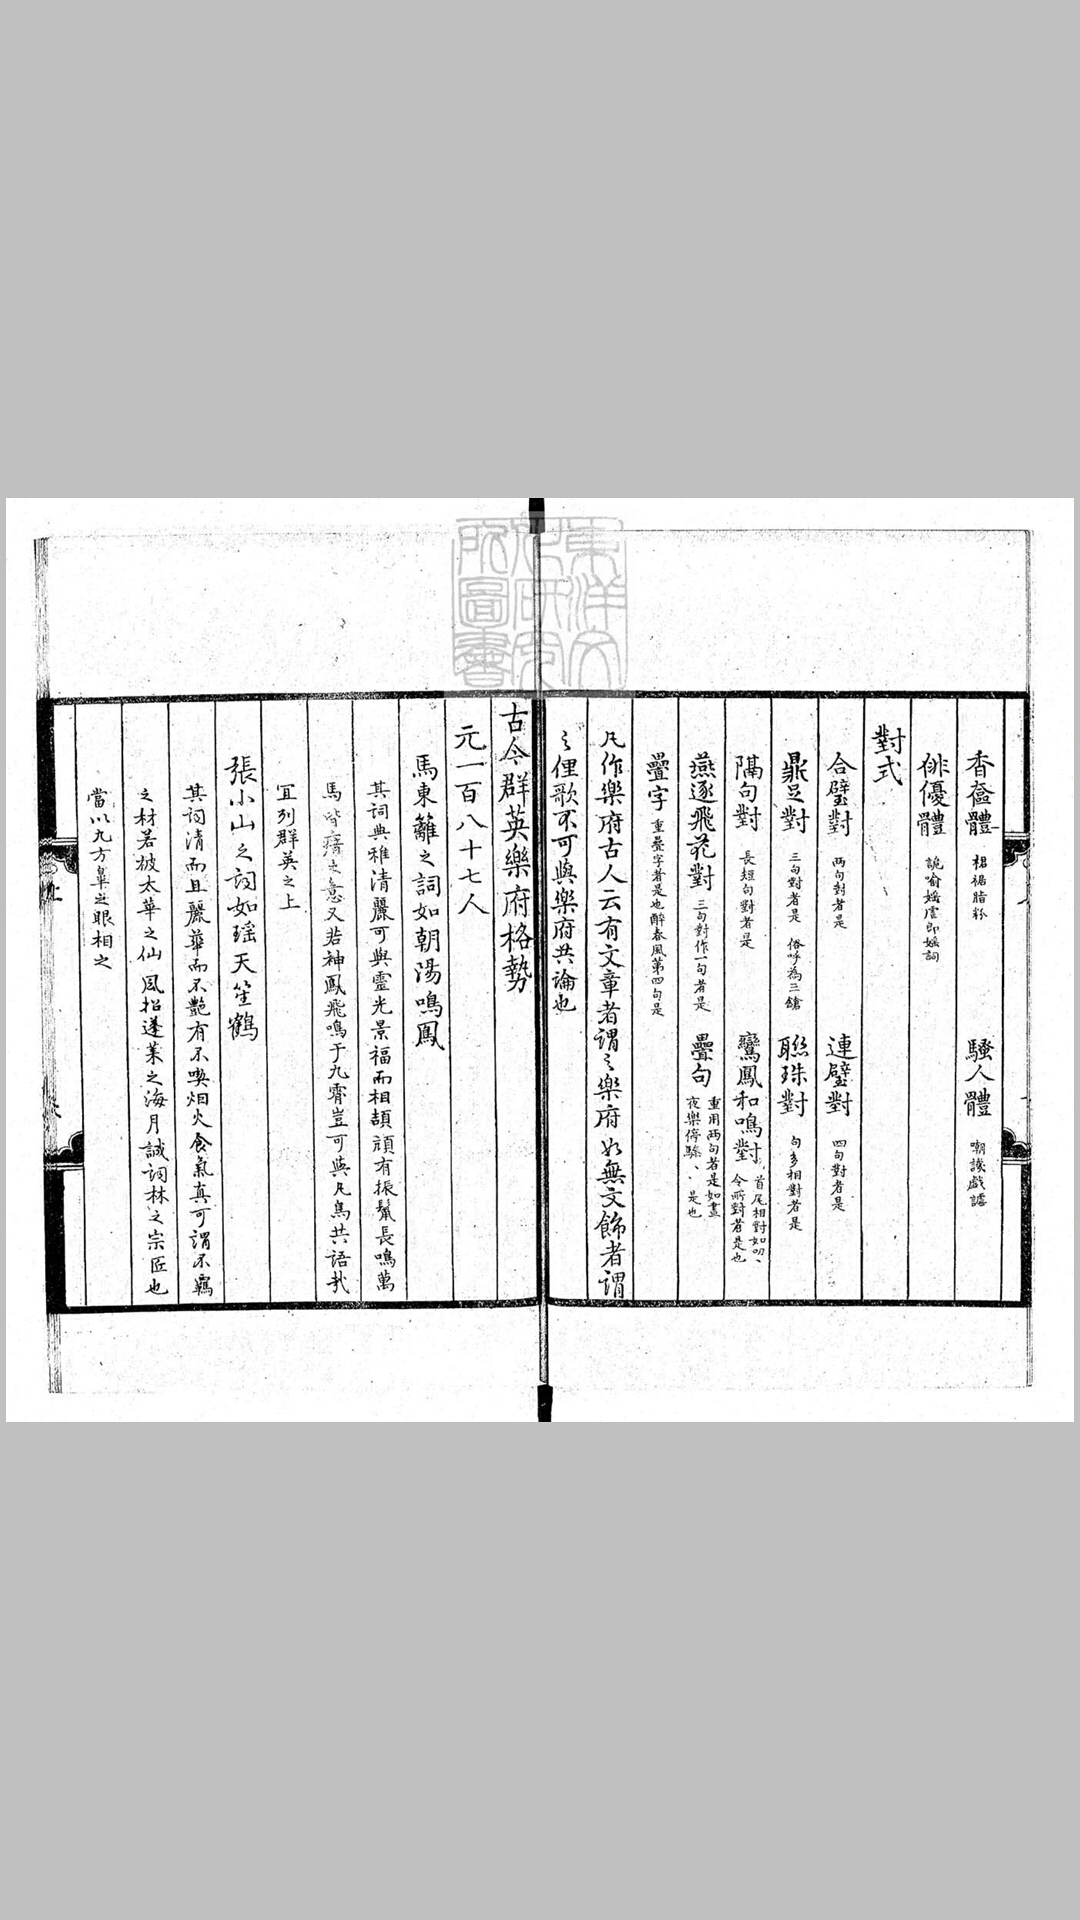 香奩體 裙裾脂粉 騷人體 嘲譏戲謔
俳優體 詭喻婬虐即婬詞
對式
合璧對 兩句對者是 連璧對 四句對者是
鼎足對 三句對者是 俗呼為三鎗 聯珠對 句多相對者是
隔句對 長短句對者是 鸞鳳和鳴對 首尾相對如叨、令所對者是也
燕逐飛花對 三句對作一句者是 疊句 重用兩句者是如晝夜樂停驂、、是也
疊字 重疊字者是也醉春風第四句是
凡作樂府古人云有文章者謂之樂府如無文飾者謂
之俚歌不可與樂府共論也
古今群英樂府格勢
元一百八十七人
馬東籬之詞如朝陽鳴鳳
其詞典雅清麗可與靈光景福而相頡頏有振鬣長鳴萬
馬皆瘖之意又若神鳳飛鳴于九霄豈可與凡鳥共語哉
宜列群英之上
張小山之詞如瑤天笙鶴
其詞清而且麗華而不艷有不喫烟火食氣真可謂不羈
之材若披太華之仙風招蓬萊之海月誠詞林之宗匠也
當以九方臯之眼相之
上
東洋文化研究所圖書